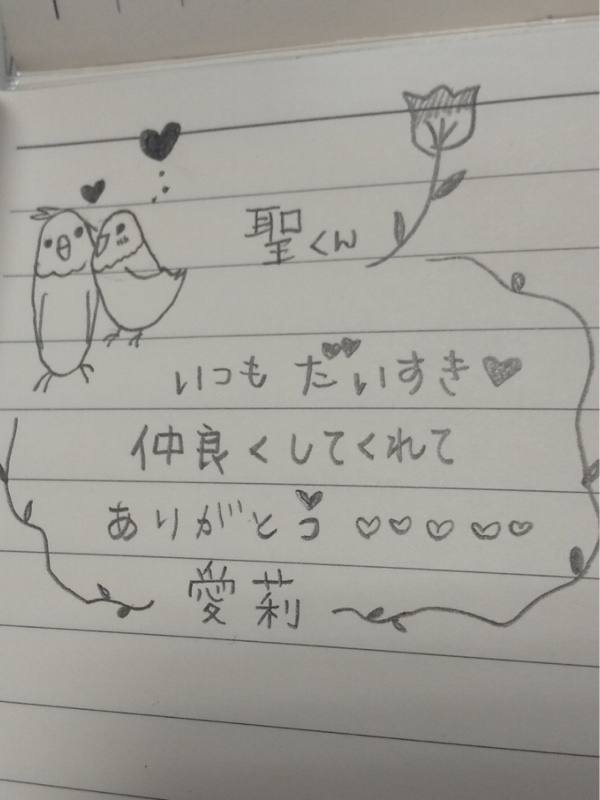 聖くん
いつも だいすき♥
仲良くしてくれて
ありがとう ♡♡♡♡♡
愛莉